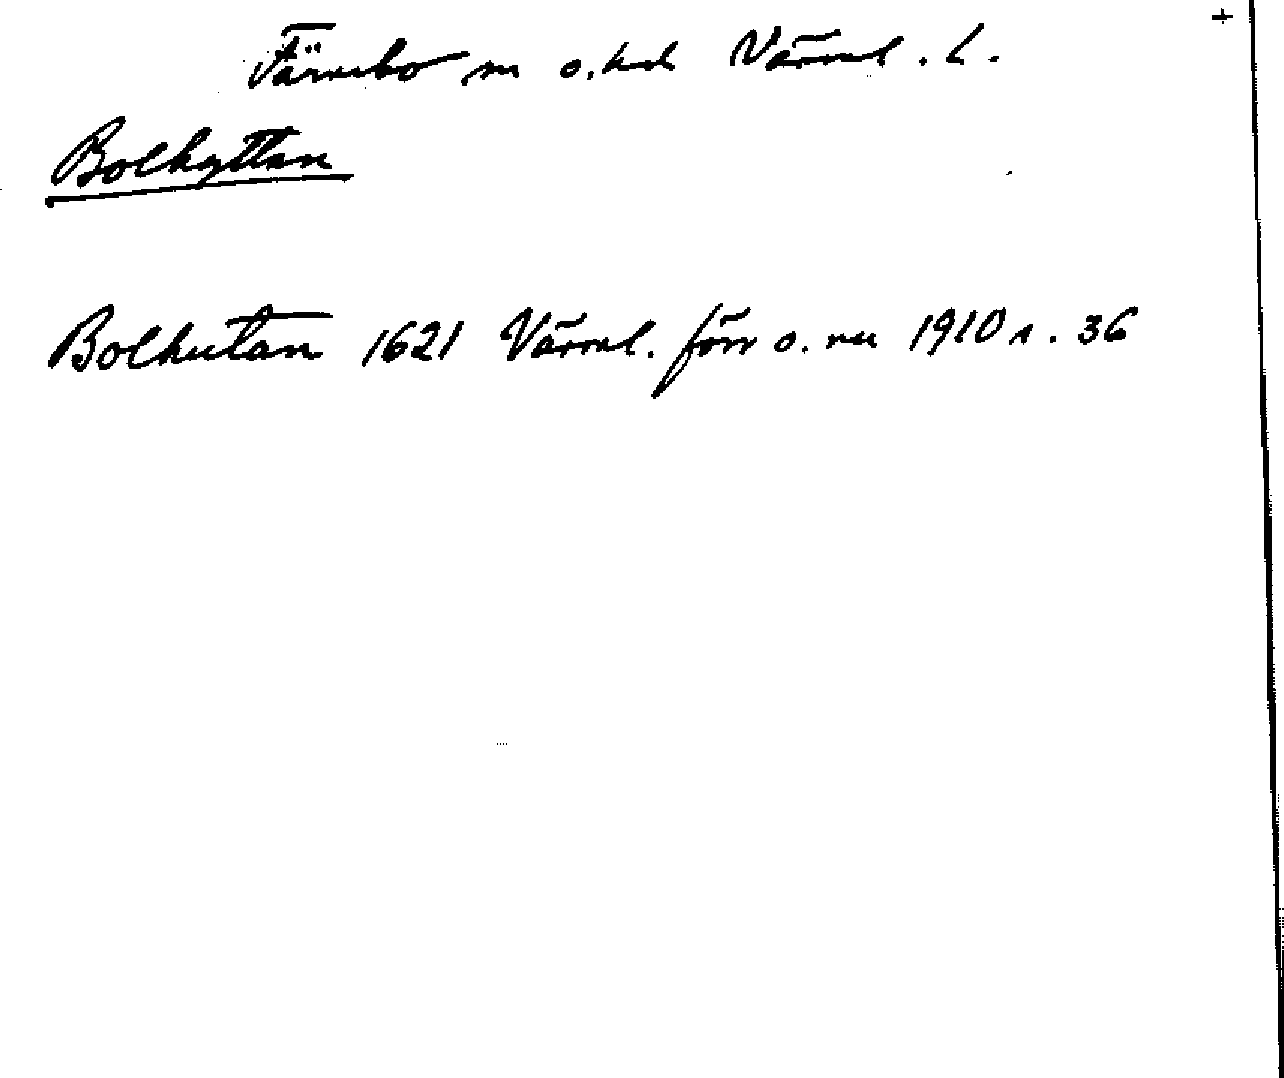 +
Färnebo sn o. hd Värml. L.
Bolhyttan
Bolhutan 1621 Värml. förr o. nu 1910 s. 36